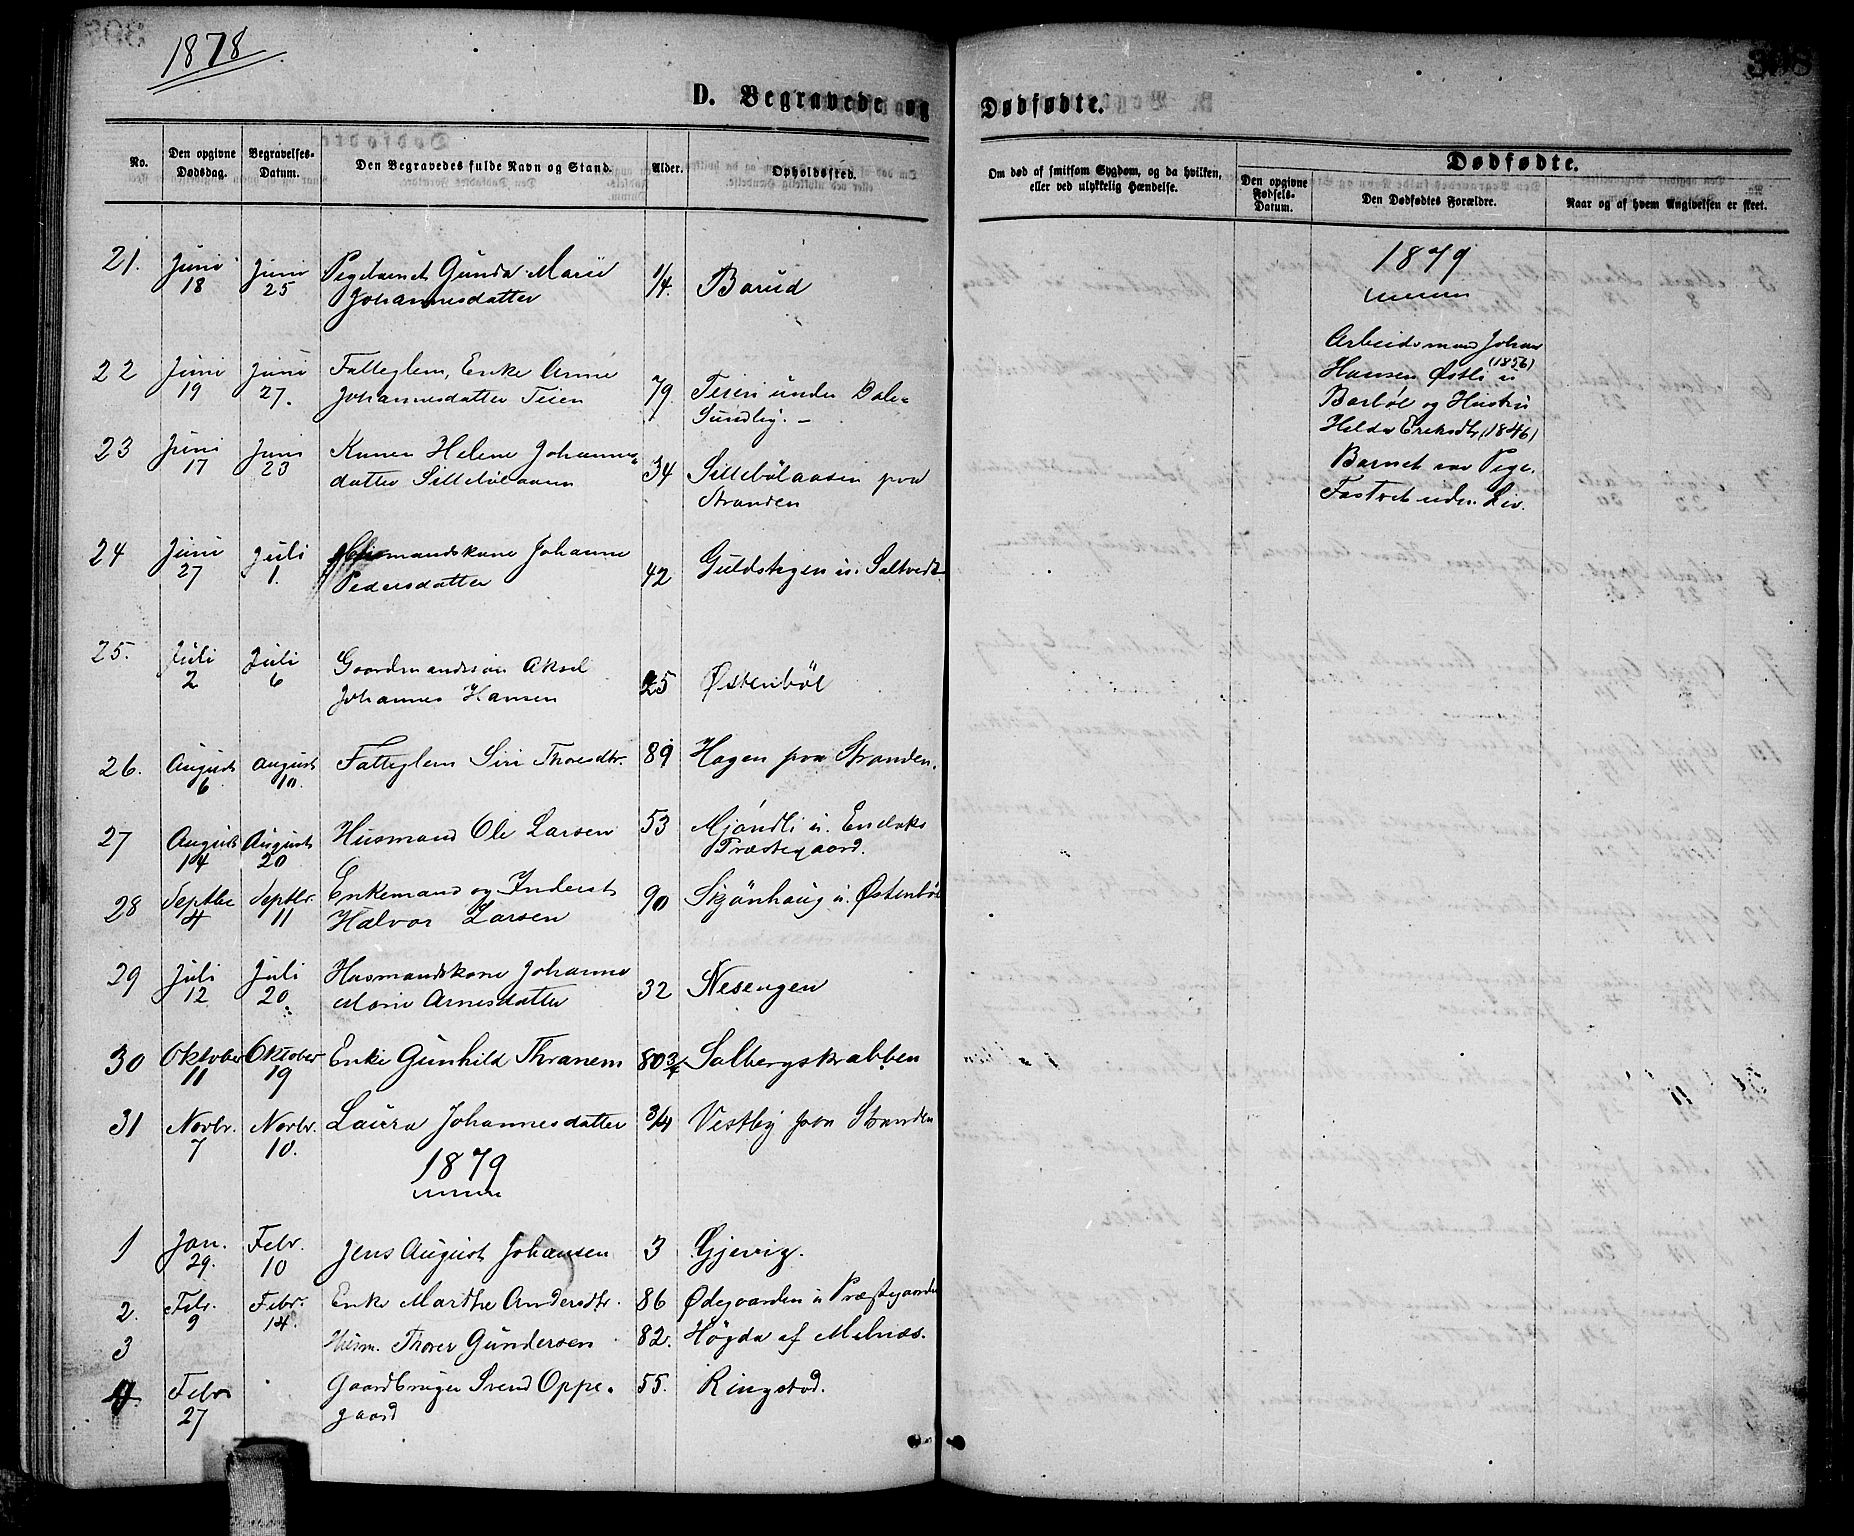 1878
308
D. Begravede og Dødfødte.
No.
Den opgivne Dødsdag.
Begravelses-Datum.
Den Begravedes fulde Navn og Stand.
Alder.
Opholdssted.
Om død af smitsom Sygdom, og da hvilken, eller ved ulykkelig Hændelse.
Dødfødte.
Den opgivne Fødsels-Datum.
Den Dødfødtes Forældre.
Naar og af hvem Angivelsen er skeet.
21. Juni 18 Juni 25 Pigebarnet Gunda Marie Johannesdatter 1/4. Borud
22 Juni 19 Juni 27. Fatteglem, Enke Anne Johannesdatter Teien 79. Teien under Dale- Sundby. –
23 Juni 17 Juni 23 Konen Helene Johannes- datter Sillebølaasen 34 Sillebølaasen paa Stranden
24 Juni 27 Juli 1. Husmandskone Johanne Pedersdatter 42 Guldstigen u. Saltvedt
25. Juli 2 Juli 6 Gaardmandssøn Aksel Johannes Hansen 25 Østenbøl
26. August 6 August 10. Fatteglem Siri Thoresdtr. 89 Hagen paa Stranden.
27 August 14 August 20 Husmand Ole Larsen 53 Mjøndli u. Enebaks Præstegaard.
28 Septbr 4 Septbr. 11 Enkemand og Inderst Halvor Larsen 90 Skjønhaug u. Østenbøl
29 Juli 12 Juli 20. Husmandskone Johanne Marie Arnesdatter 32 Nesengen
30 Oktober 11 Oktober 19 Enke Gunhild Thranem 80 3/4 Solbergskrabben
31 Novbr. 7 Novbr. 10. Laura Johannesdatter 3/4 Vestby paa Stranden
1879
1 Jan. 29. Febr. 10 Jens August Johansen 3 Gjevig.
2. Febr. 9 Febr. 14. Enke Marthe Andersdtr. 86 Ødegaarden u Præstegaarden
3 Husm. Thorer Gundersen 82. Høgda af Melnæs.
4. Febr 27 Gaardbruger Svend Oppe- gaard 55. Ringstad.
1879
Arbeidsmand Johan
Hansen Østli u (1856)
Barbøl og Hustru
Helda Eriksdtr (1846)
Barnet var Pige.
Fostret uden Liv.